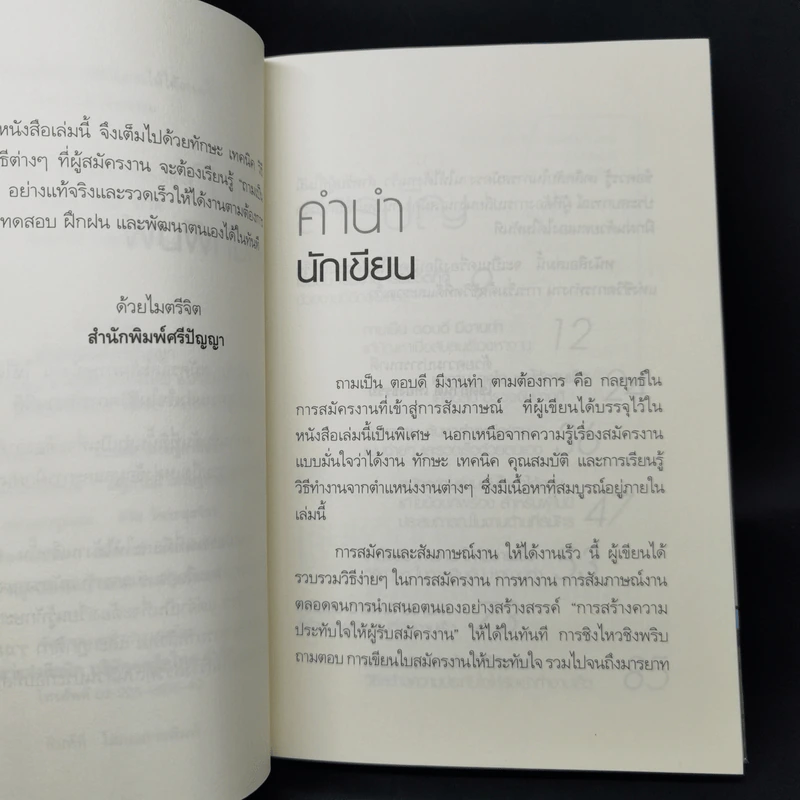 หนังสือเล่มนี้ จึงเต็มไปด้วยทักษะ เทคนิค วิ
ธีต่างๆ ที่ผู้สมัครงาน จะต้องเรียนรู้ "ถามเป็น
อย่างแท้จริงและรวดเร็วให้ได้งานตามต้องการ
ทดสอบ ฝึกฝน และพัฒนาตนเองได้ในทันที
ด้วยไมตรีจิต
สำนักพิมพ์ศรีปัญญา
คำนำ
นักเขียน
ถามเป็น ตอบดี มีงานทำ ตามต้องการ คือ กลยุทธ์ใน
การสมัครงานที่เข้าสู่การสัมภาษณ์ ที่ผู้เขียนได้บรรจุไว้ใน
หนังสือเล่มนี้เป็นพิเศษ นอกเหนือจากความรู้เรื่องสมัครงาน
แบบมั่นใจว่าได้งาน ทักษะ เทคนิค คุณสมบัติ และการเรียนรู้
วิธีทำงานจากตำแหน่งงานต่างๆ ซึ่งมีเนื้อหาที่สมบูรณ์อยู่ภายใน
เล่มนี้
การสมัครและสัมภาษณ์งาน ให้ได้งานเร็ว นี้ ผู้เขียนได้
รวบรวมวิธีง่ายๆ ในการสมัครงาน การหางาน การสัมภาษณ์งาน
ตลอดจนการนำเสนอตนเองอย่างสร้างสรรค์ "การสร้างความ
ประทับใจให้ผู้รับสมัครงาน" ให้ได้ในทันที การชิงไหวชิงพริบ
ถามตอบ การเขียนใบสมัครงานให้ประทับใจ รวมไปจนถึงมารยาท